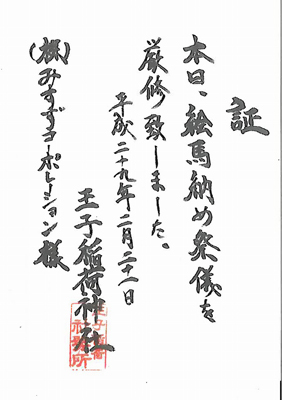 証
本日、絵馬納め祭儀を
厳修致しました。
平成二十九年二月二十一日
王子稲荷神社
(株)みすずコーポレーション様